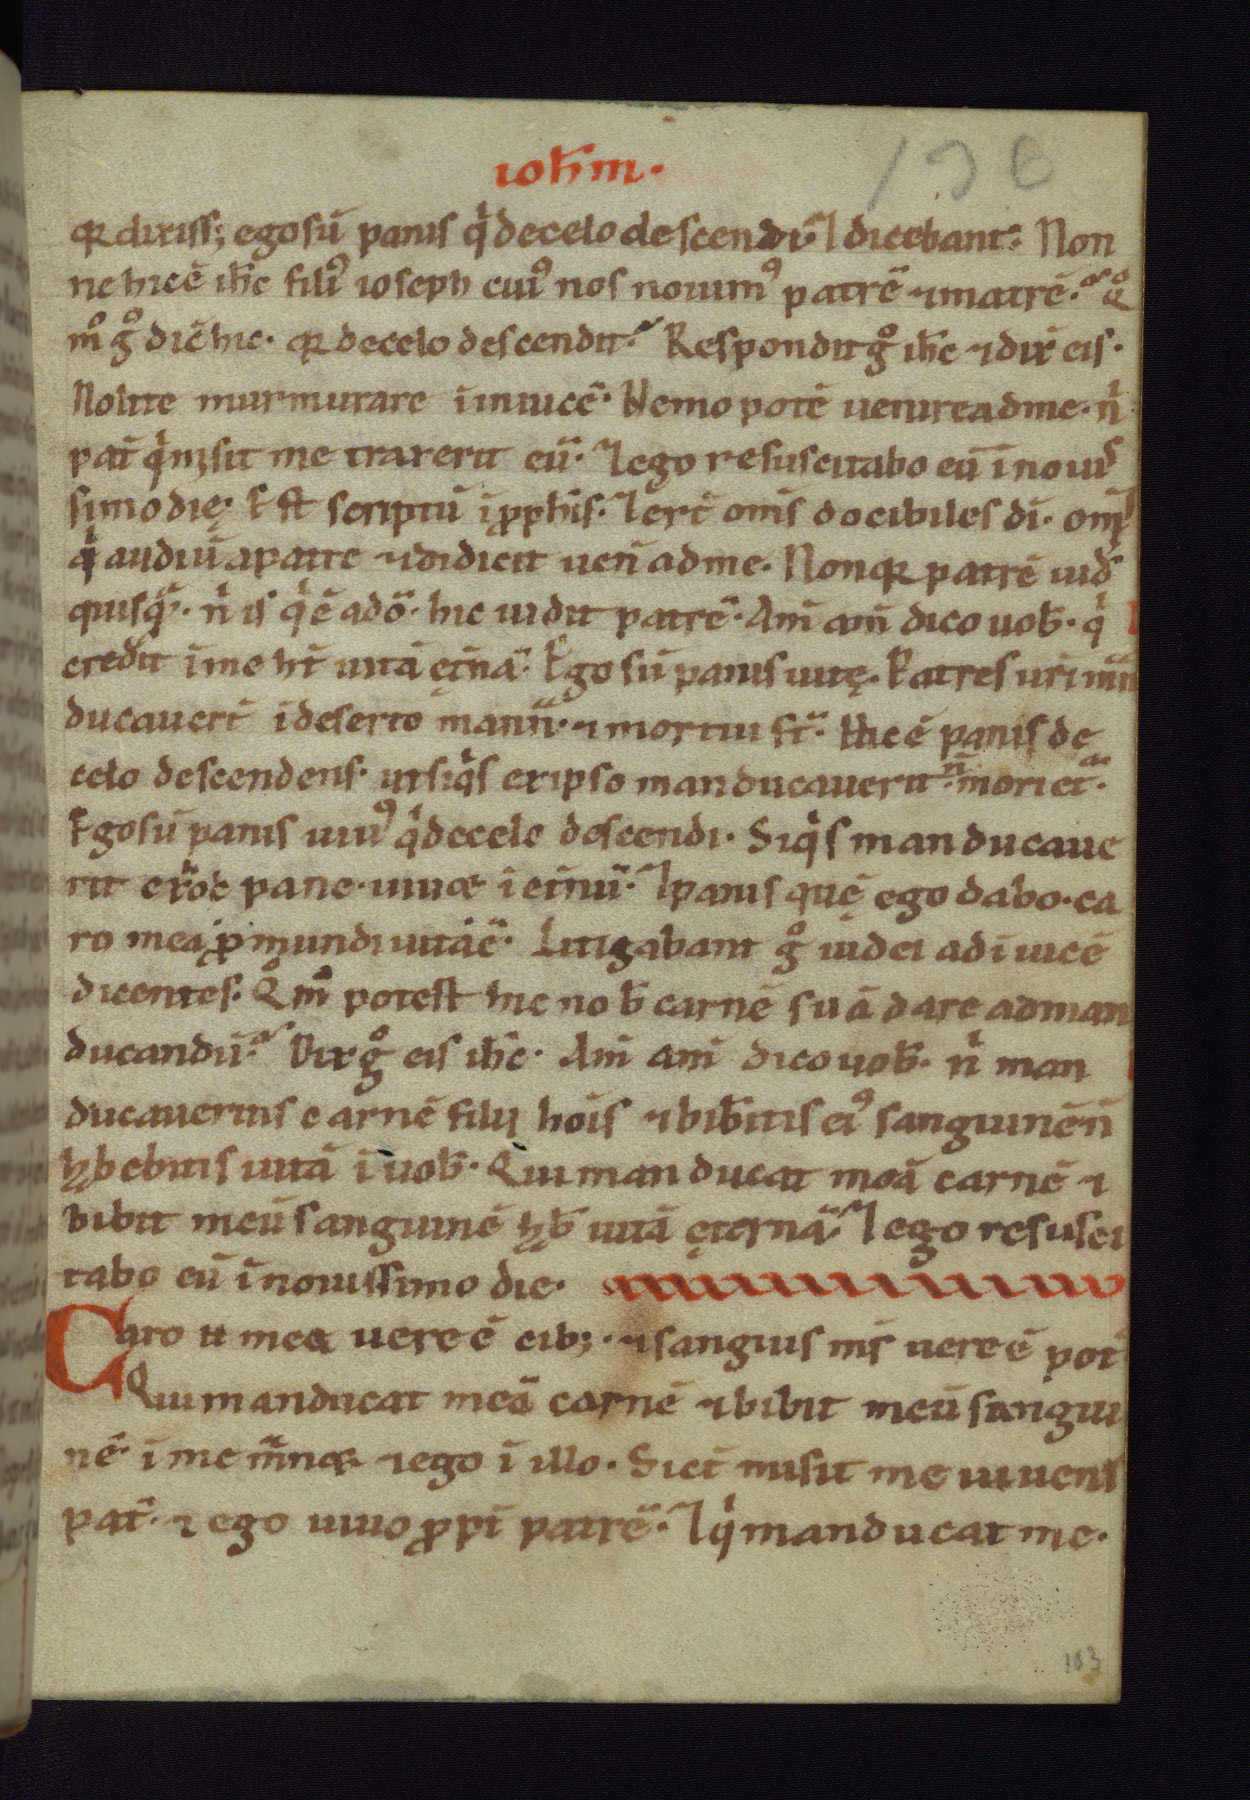 ioh̄m.
130
qꝛ dixiss; ego sū panis q̇ de celo descendi. ⁊ dicebant. Non
ne hic ē ih̄c fili᾽ ioseph cui᾽ nos nouim᾽ patrē ⁊ matrē. Qͦ
mͦ gͦ dic̄ hic. qꝛ de celo descendit. Respondit gͦ ih̄c ⁊ dix̄ eis.
Nolite murmurare īinuicē. Nemo potē uenire ad me. n̍
pat̄ q̍ mis̄it me traxerit eū. ⁊ ego resuscitabo eū ī nouis
simo dię. Est scriptū ī ꝓph̄is. ⁊ er̄t om̄s docibiles dī. om̄s
q̍ audiū a patre ⁊ didicit uen̄ ad me. Non qꝛ patrē uid̄
quisqā. n̍ is q̍ ē a dō. hic uidit patrē. Am̄ am̄ dico uob̄. q̍
credit ī me ht̄ uitā ęt̄nā. Ego sū panis uitę. Patres ur̄i mā
ducauer̄t ī deserto mann̄. ⁊ mortui st̄. Hic ē panis de
celo descendens. ut siq̍s ex ipso manducauerit n̄ moriet̄.
Ego sū panis uiu᾽ q̍ de celo descendi. Siq̍s manducaue
rit ex hoc pane. uiuæ ī et̄nū. ⁊ panis quę ego dabo. ca
ro mea ꝓ mundi uita ē. Litigabant gͦ iudei ad ī uicē
dicentes. Qͦ mͦ potest hic nob̄ carnē suā dare ad man
ducandū. Dix gͦ eis ih̄c. Am̄ am̄ dico uob̄. n̍ man
ducaueritis carnē filij hoīs ⁊ bib̄itis ei᾽ sanguinē n̄
hꝫbebitis uitā ī uob̄. Qui manducat meā carnē ⁊
bibit meū sanguinē hꝫb̄ uitā ęternā. ⁊ ego resusci
tabo eū ī nouissimo die.
Caro u mea uere ē cib;. ⁊ sanguis ms̄ uere ē pot̄
Qui manducat meā carnē ⁊ bibit meū sangui
nē ī me m̄næ. ⁊ ego ī illo. Sict̄ misit me uiuens
pat̄. ⁊ ego uiuo ꝓpt̄ patrē. ⁊ q̍ manducat me.
103